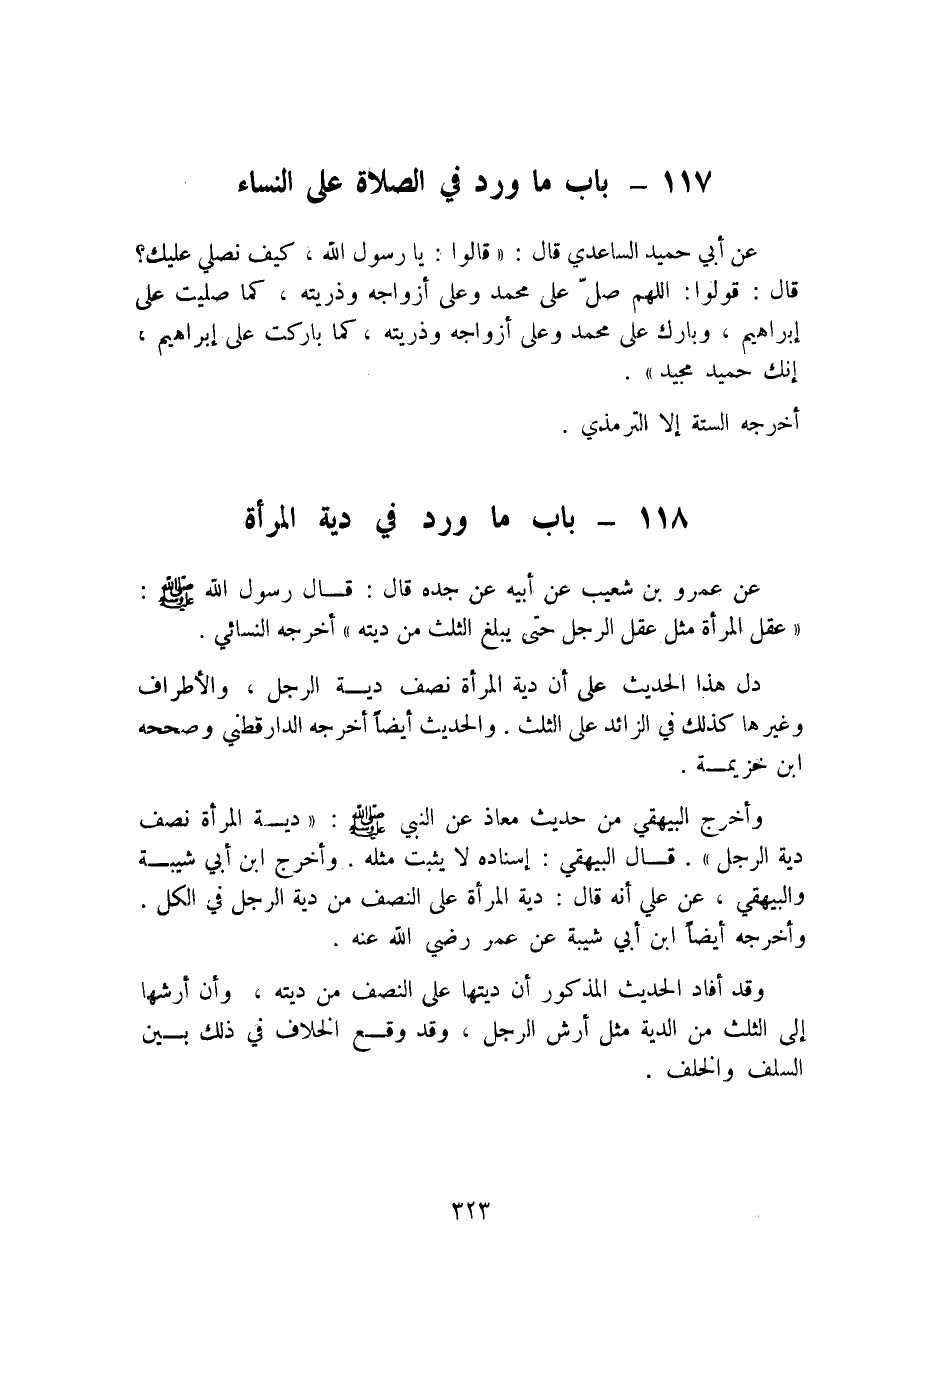 ١١٧ – باب ما ورد في الصلاة على النساء
عن أبي حميد الساعدي قال : « قالوا : يا رسول الله ، كيف نصلي عليك؟
قال : قولوا: اللهم صلّ على محمد وعلى أزواجه وذريته ، كما صليت على
إبراهيم ، وبارك على محمد وعلى أزواجه وذريته ، كما باركت على إبراهيم ،
إنك حميد مجيد » .
أخرجه الستة إلا الترمذي .
١١٨ – باب ما ورد في دية المرأة
عن عمرو بن شعيب عن أبيه عن جده قال : قـــال رسول الله ﷺ :
« عقل المرأة مثل عقل الرجل حتى يبلغ الثلث من ديته » أخرجه النسائي .
دل هذا الحديث على أن دية المرأة نصف ديـــة الرجل ، والأطراف
وغيرها كذلك في الزائد على الثلث . والحديث أيضاً أخرجه الدارقطني وصححه
ابن خزيمـــة .
وأخرج البيهقي من حديث معاذ عن النبي ﷺ : « ديـــة المرأة نصف
دية الرجل » . قـــال البيهقي : إسناده لا يثبت مثله . وأخرج ابن أبي شيبـــة
والبيهقي ، عن علي أنه قال : دية المرأة على النصف من دية الرجل في الكل .
وأخرجه أيضاً ابن أبي شيبة عن عمر رضي الله عنه .
وقد أفاد الحديث المذكور أن ديتها على النصف من ديته ، وأن أرشها
إلى الثلث من الدية مثل أرش الرجل ، وقد وقـــع الخلاف في ذلك بـــين
السلف والخلف .
٣٢٣